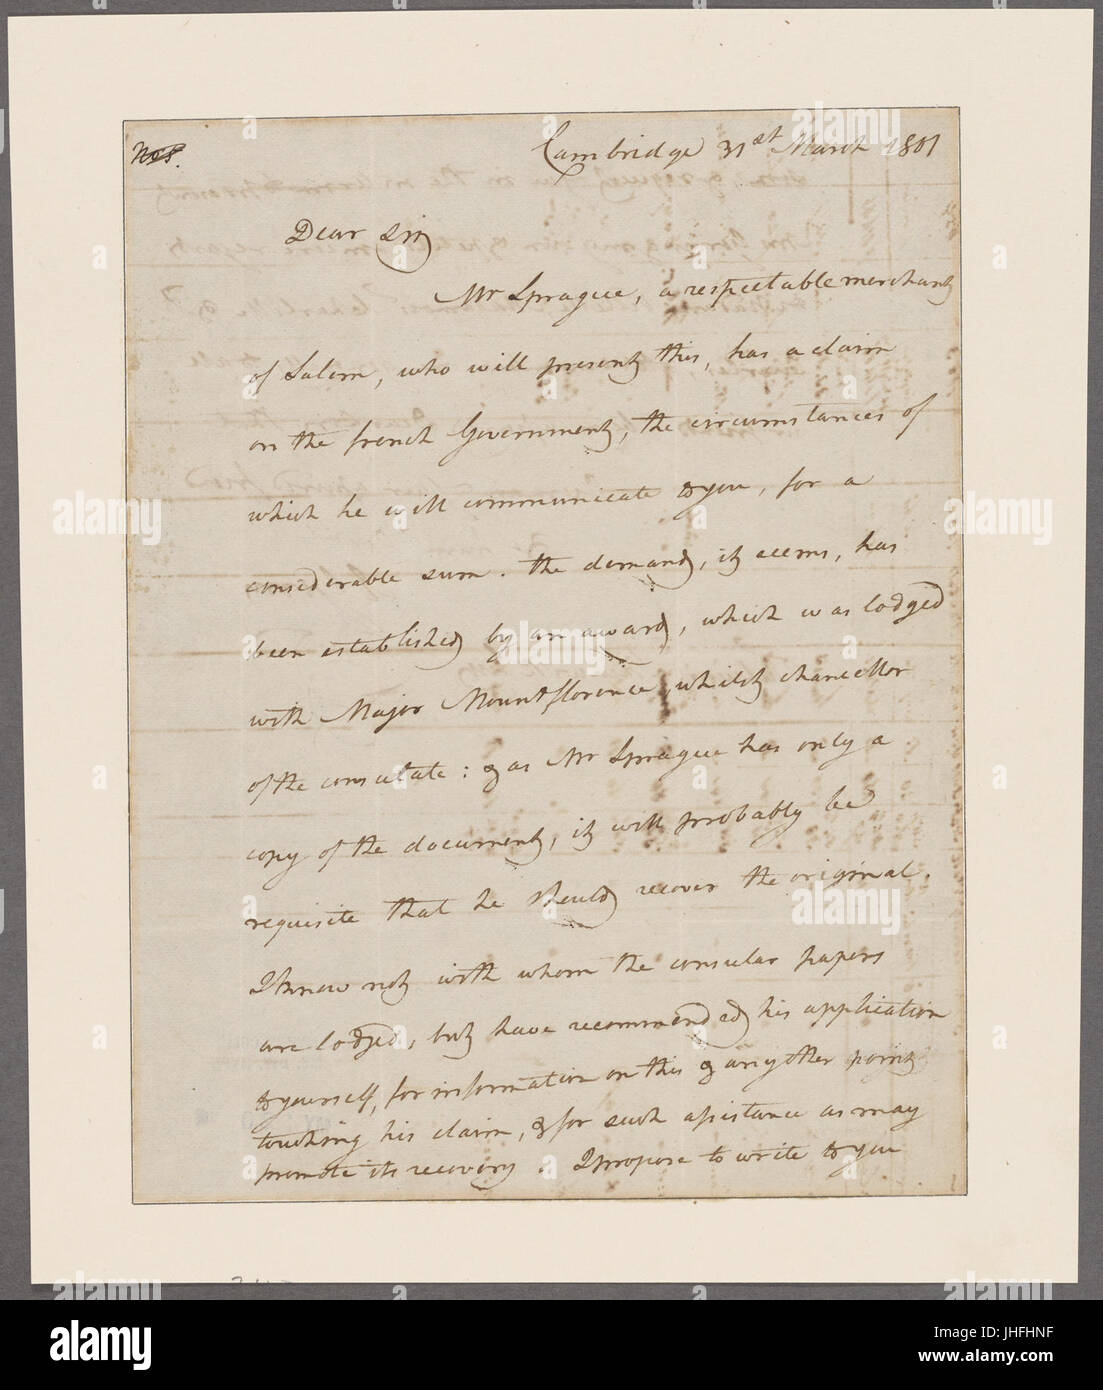 No 8.
Cambridge 31st March 1801
Dear Sir,
Mr Sprague, a respectable merchant
of Salem, who will present this, has a claim
on the french Government, the circumstances of
which he will communicate to you, for a
considerable sum. The demand, it seems, has
been established by an award, which was lodged
with Major Mountflorence whilst chancellor
of the consulate: & as Mr Sprague has only a
copy of the document, it will probably be
requisite that he should recover the original.
I know not with whom the consular papers
are lodged, but have recommended his application
to yourself, for information on this & any other point
touching his claim, & for such assistance as may
promote its recovery. I propose to write to you
alamy
Image ID: JHFHNF
www.alamy.com